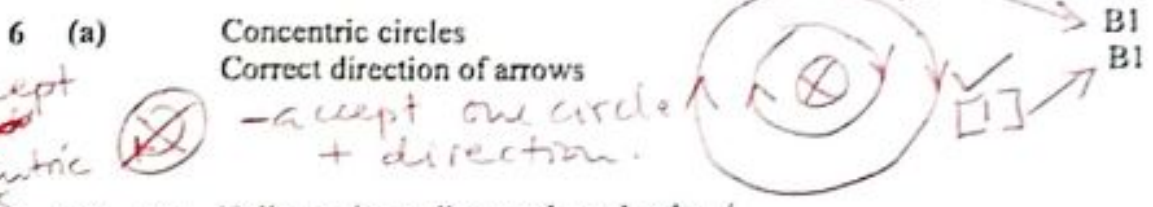 6 (a) Concentric circles B1
Correct direction of arrows B1
-accept one circle
+ direction.
[1]